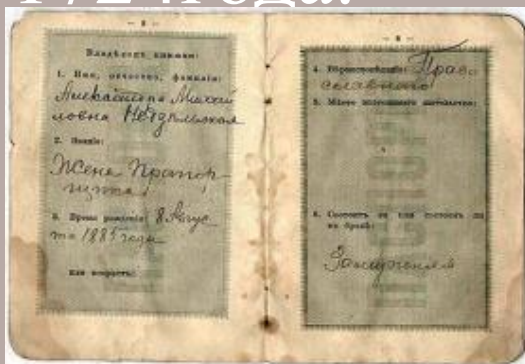 1724 года.
— 2 —
Владѣлецъ книжки:
1. Имя, отчество, фамилія:
Александра Михай
ловна
2. Званіе:
Жена Прапор-
щика
3. Время рожденія: 8 Авгус
та 1885 года
или возрастъ:
4. Вѣроисповѣданіе: Право
славнаго
5. Мѣсто постояннаго жительства:
6. Состоитъ ли или состоялъ ли
въ бракѣ:
Замужняя
ПАСПОРТ